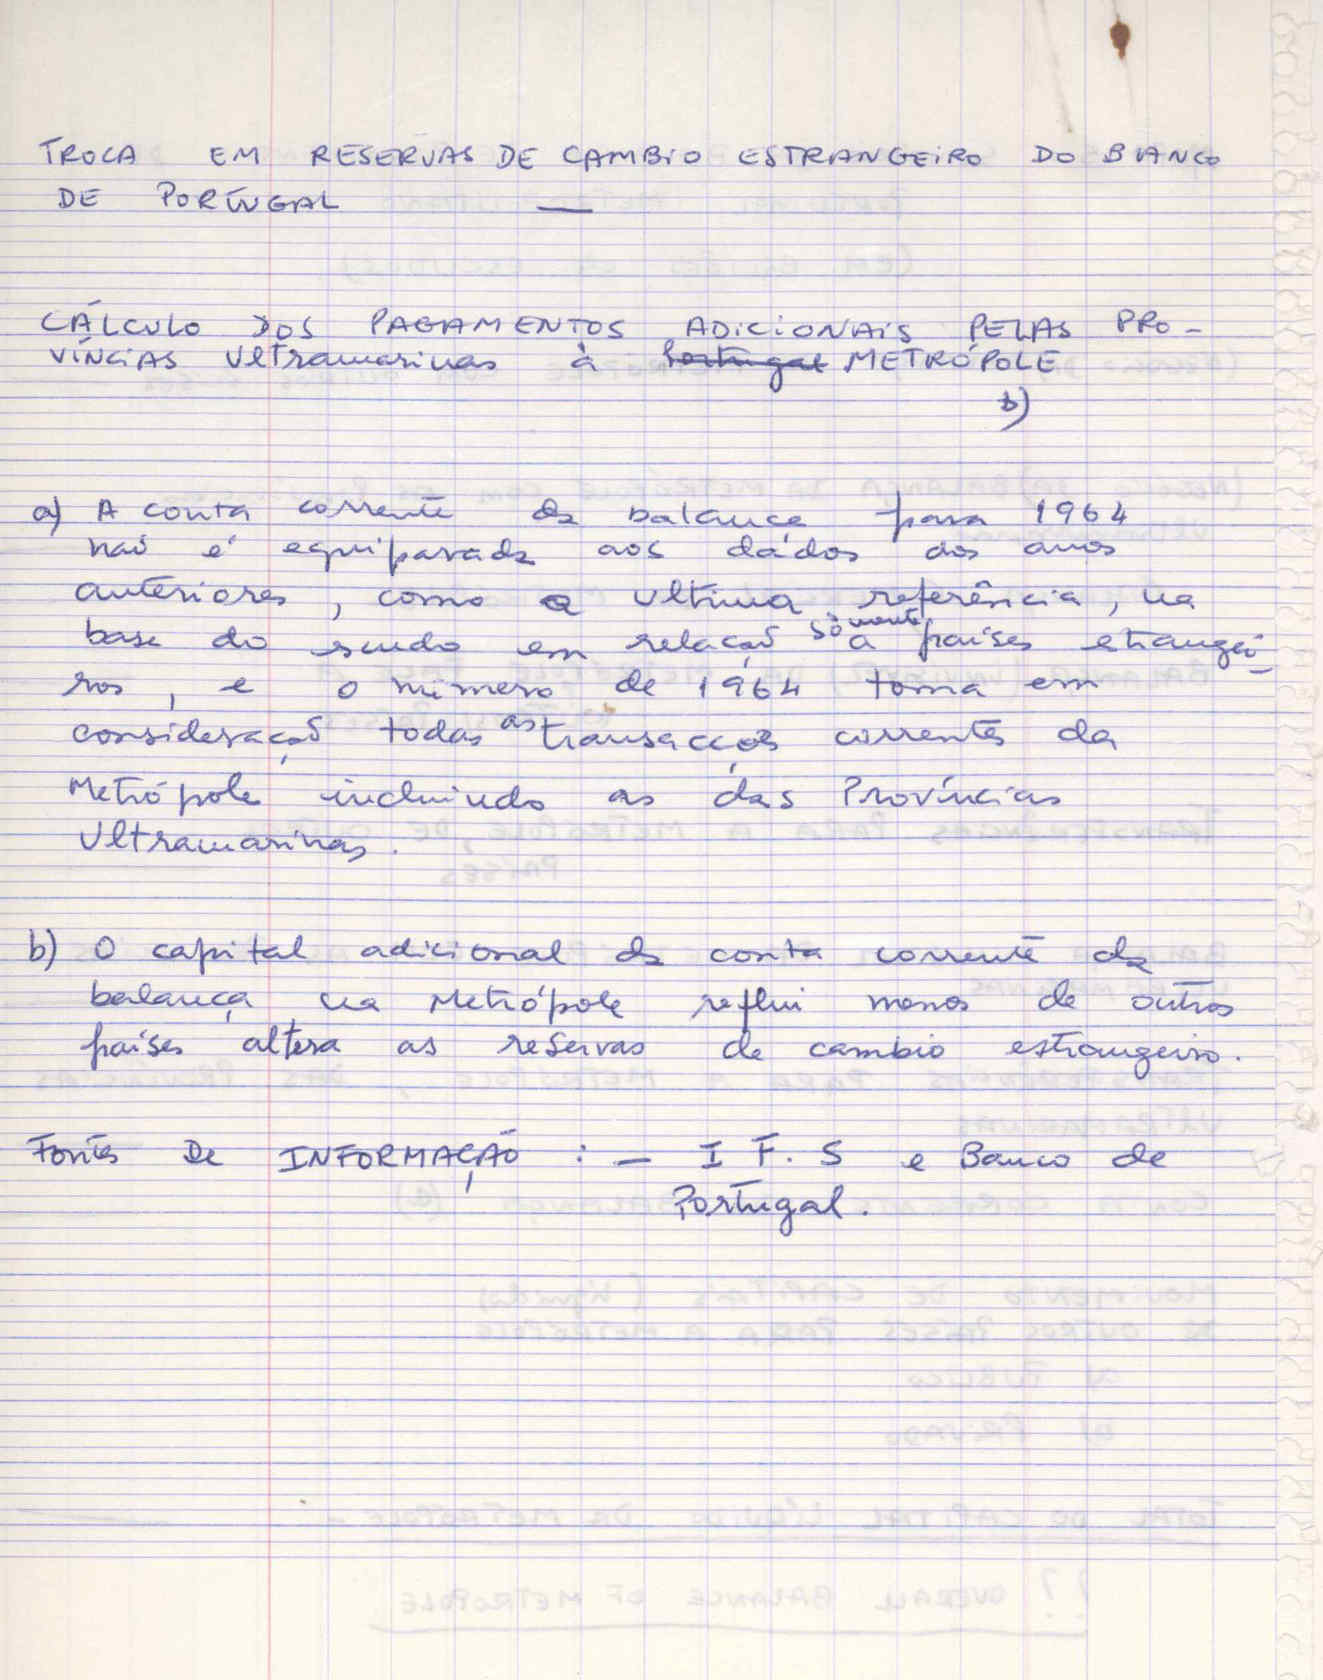 TROCA EM RESERVAS DE CAMBIO ESTRANGEIRO DO BANCO
DE PORTUGAL —
CÁLCULO DOS PAGAMENTOS ADICIONAIS PELAS PRO-
VÍNCIAS Ultramarinas à Portugal METRÓPOLE
b)
a) A conta corrente da balance para 1964
não é equiparada aos dádos dos anos
anteriores, como a ultima referência, na
base do sendo em relação sòmente a países etrangei-
ros, e o número de 1964 toma em
consideração todas as transacções correntes da
Metrópole incluindo as das Províncias
Ultramarinas.
b) O capital adicional da conta corrente da
balança na Metrópole reflui menos de outros
países altera as reservas de cambio estrangeiro.
Fontes De INFORMAÇÃO : — I F. S e Banco de
Portugal.